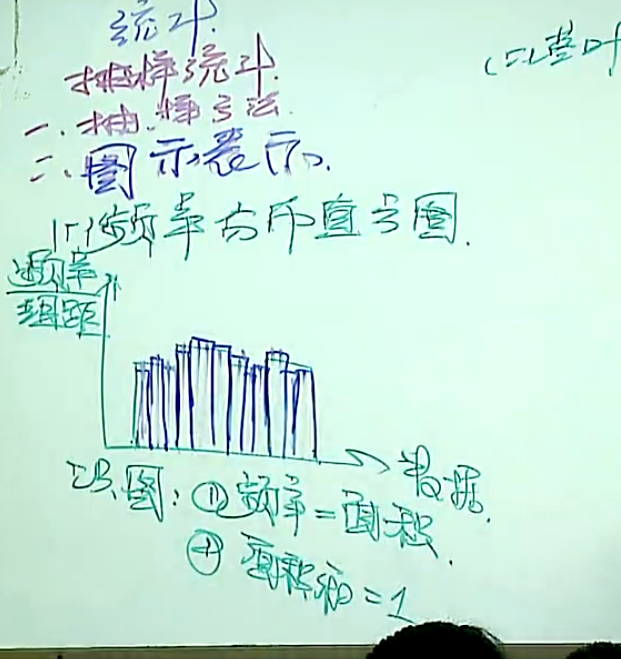 统计.
抽样统计.
一.抽样方法.
二.图示表示.
(一)频率分布直方图.
频率
组距
数据.
识图:①频率=面积.
②面积和=1
(二)茎叶